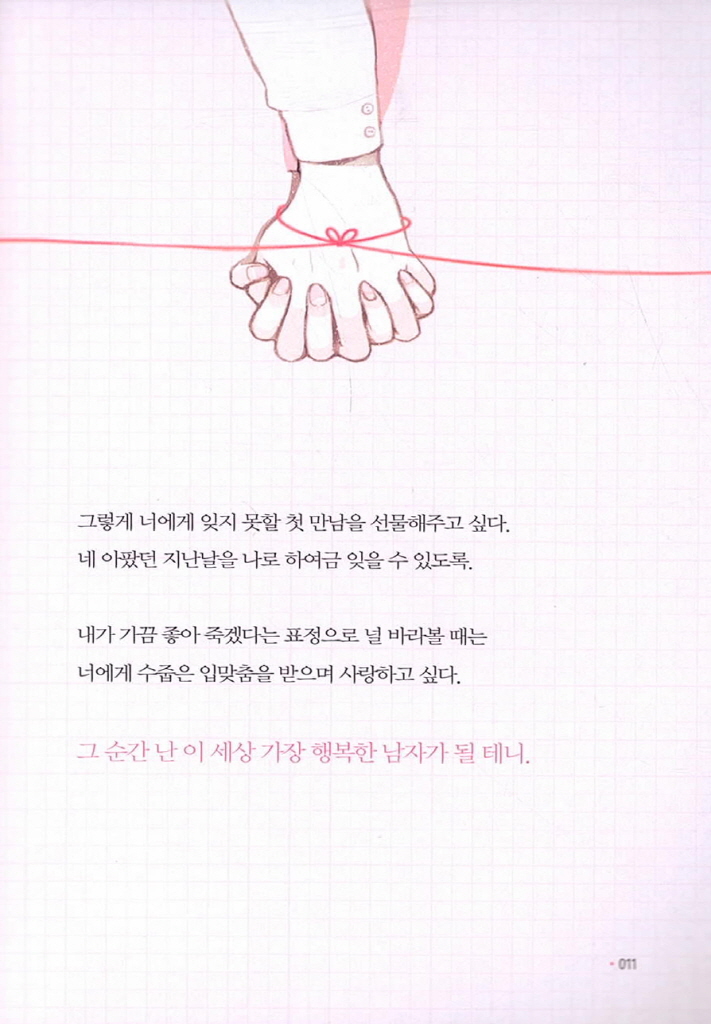 그렇게 너에게 잊지 못할 첫 만남을 선물해주고 싶다.
네 아팠던 지난날을 나로 하여금 잊을 수 있도록.
내가 가끔 좋아 죽겠다는 표정으로 널 바라볼 때는
너에게 수줍은 입맞춤을 받으며 사랑하고 싶다.
그 순간 난 이 세상 가장 행복한 남자가 될 테니.
• 011